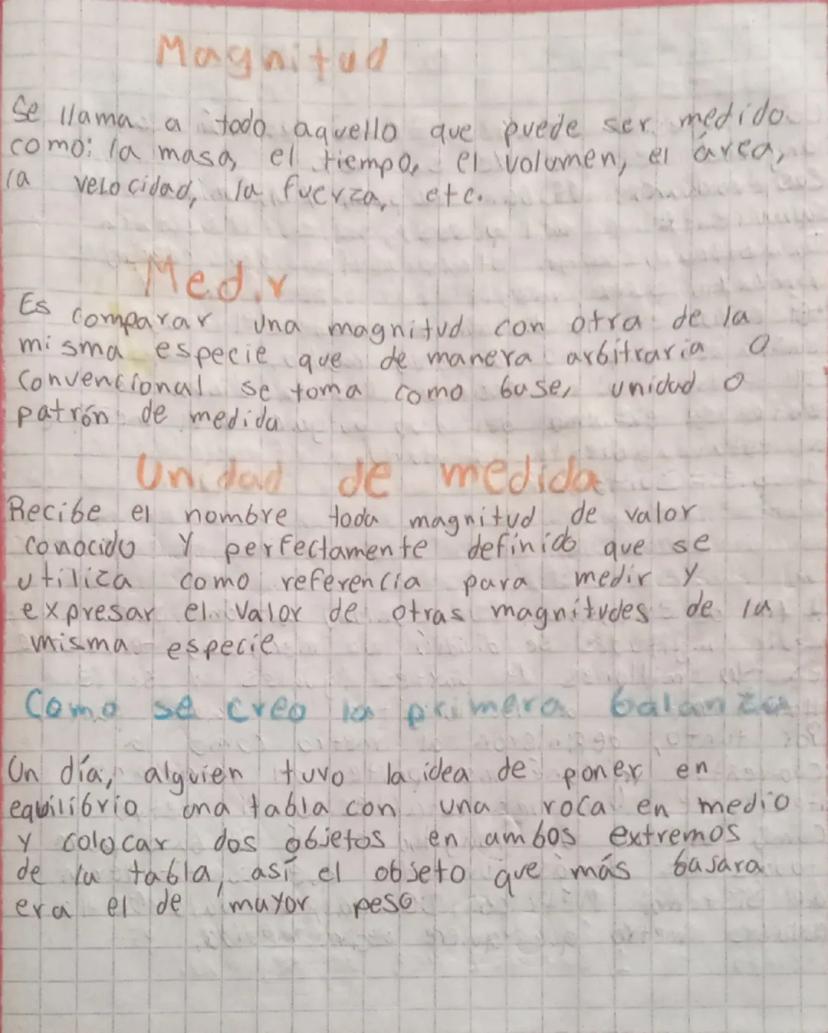 Magnitud
Se llama a todo aquello que puede ser medido
como: la masa, el tiempo, el volumen, el área,
la velocidad, la fuerza, etc.
Medir
Es comparar una magnitud con otra de la
misma especie que de manera arbitraria o
convencional se toma como base, unidad o
patrón de medida
Unidad de medida
Recibe el nombre toda magnitud de valor
conocido y perfectamente definido que se
utiliza como referencia para medir y
expresar el valor de otras magnitudes de la
misma especie
Como se creo la primera balanza
Un día, alguien tuvo la idea de poner en
equilibrio una tabla con una roca en medio
y colocar dos objetos en ambos extremos
de la tabla, así el objeto que más basara
era el de mayor peso